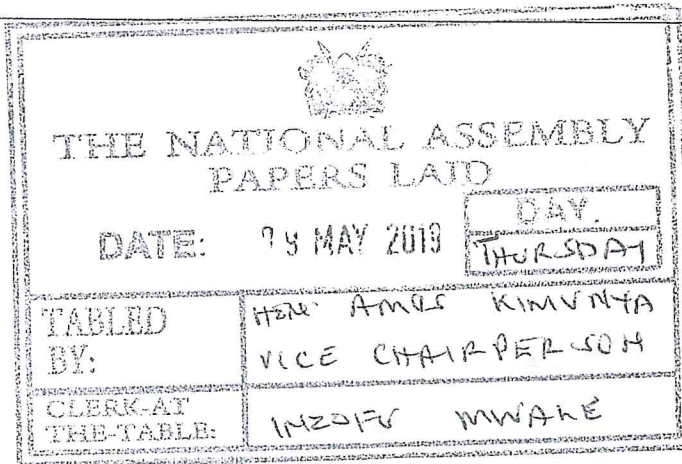 THE NATIONAL ASSEMBLY
PAPERS LAID
DATE: 09 MAY 2019
DAY.
THURSDAY
TABLED BY:
HON. AMOS KIMUNYA
VICE CHAIRPERSON
CLERK-AT
THE-TABLE:
INZOFU MWALE